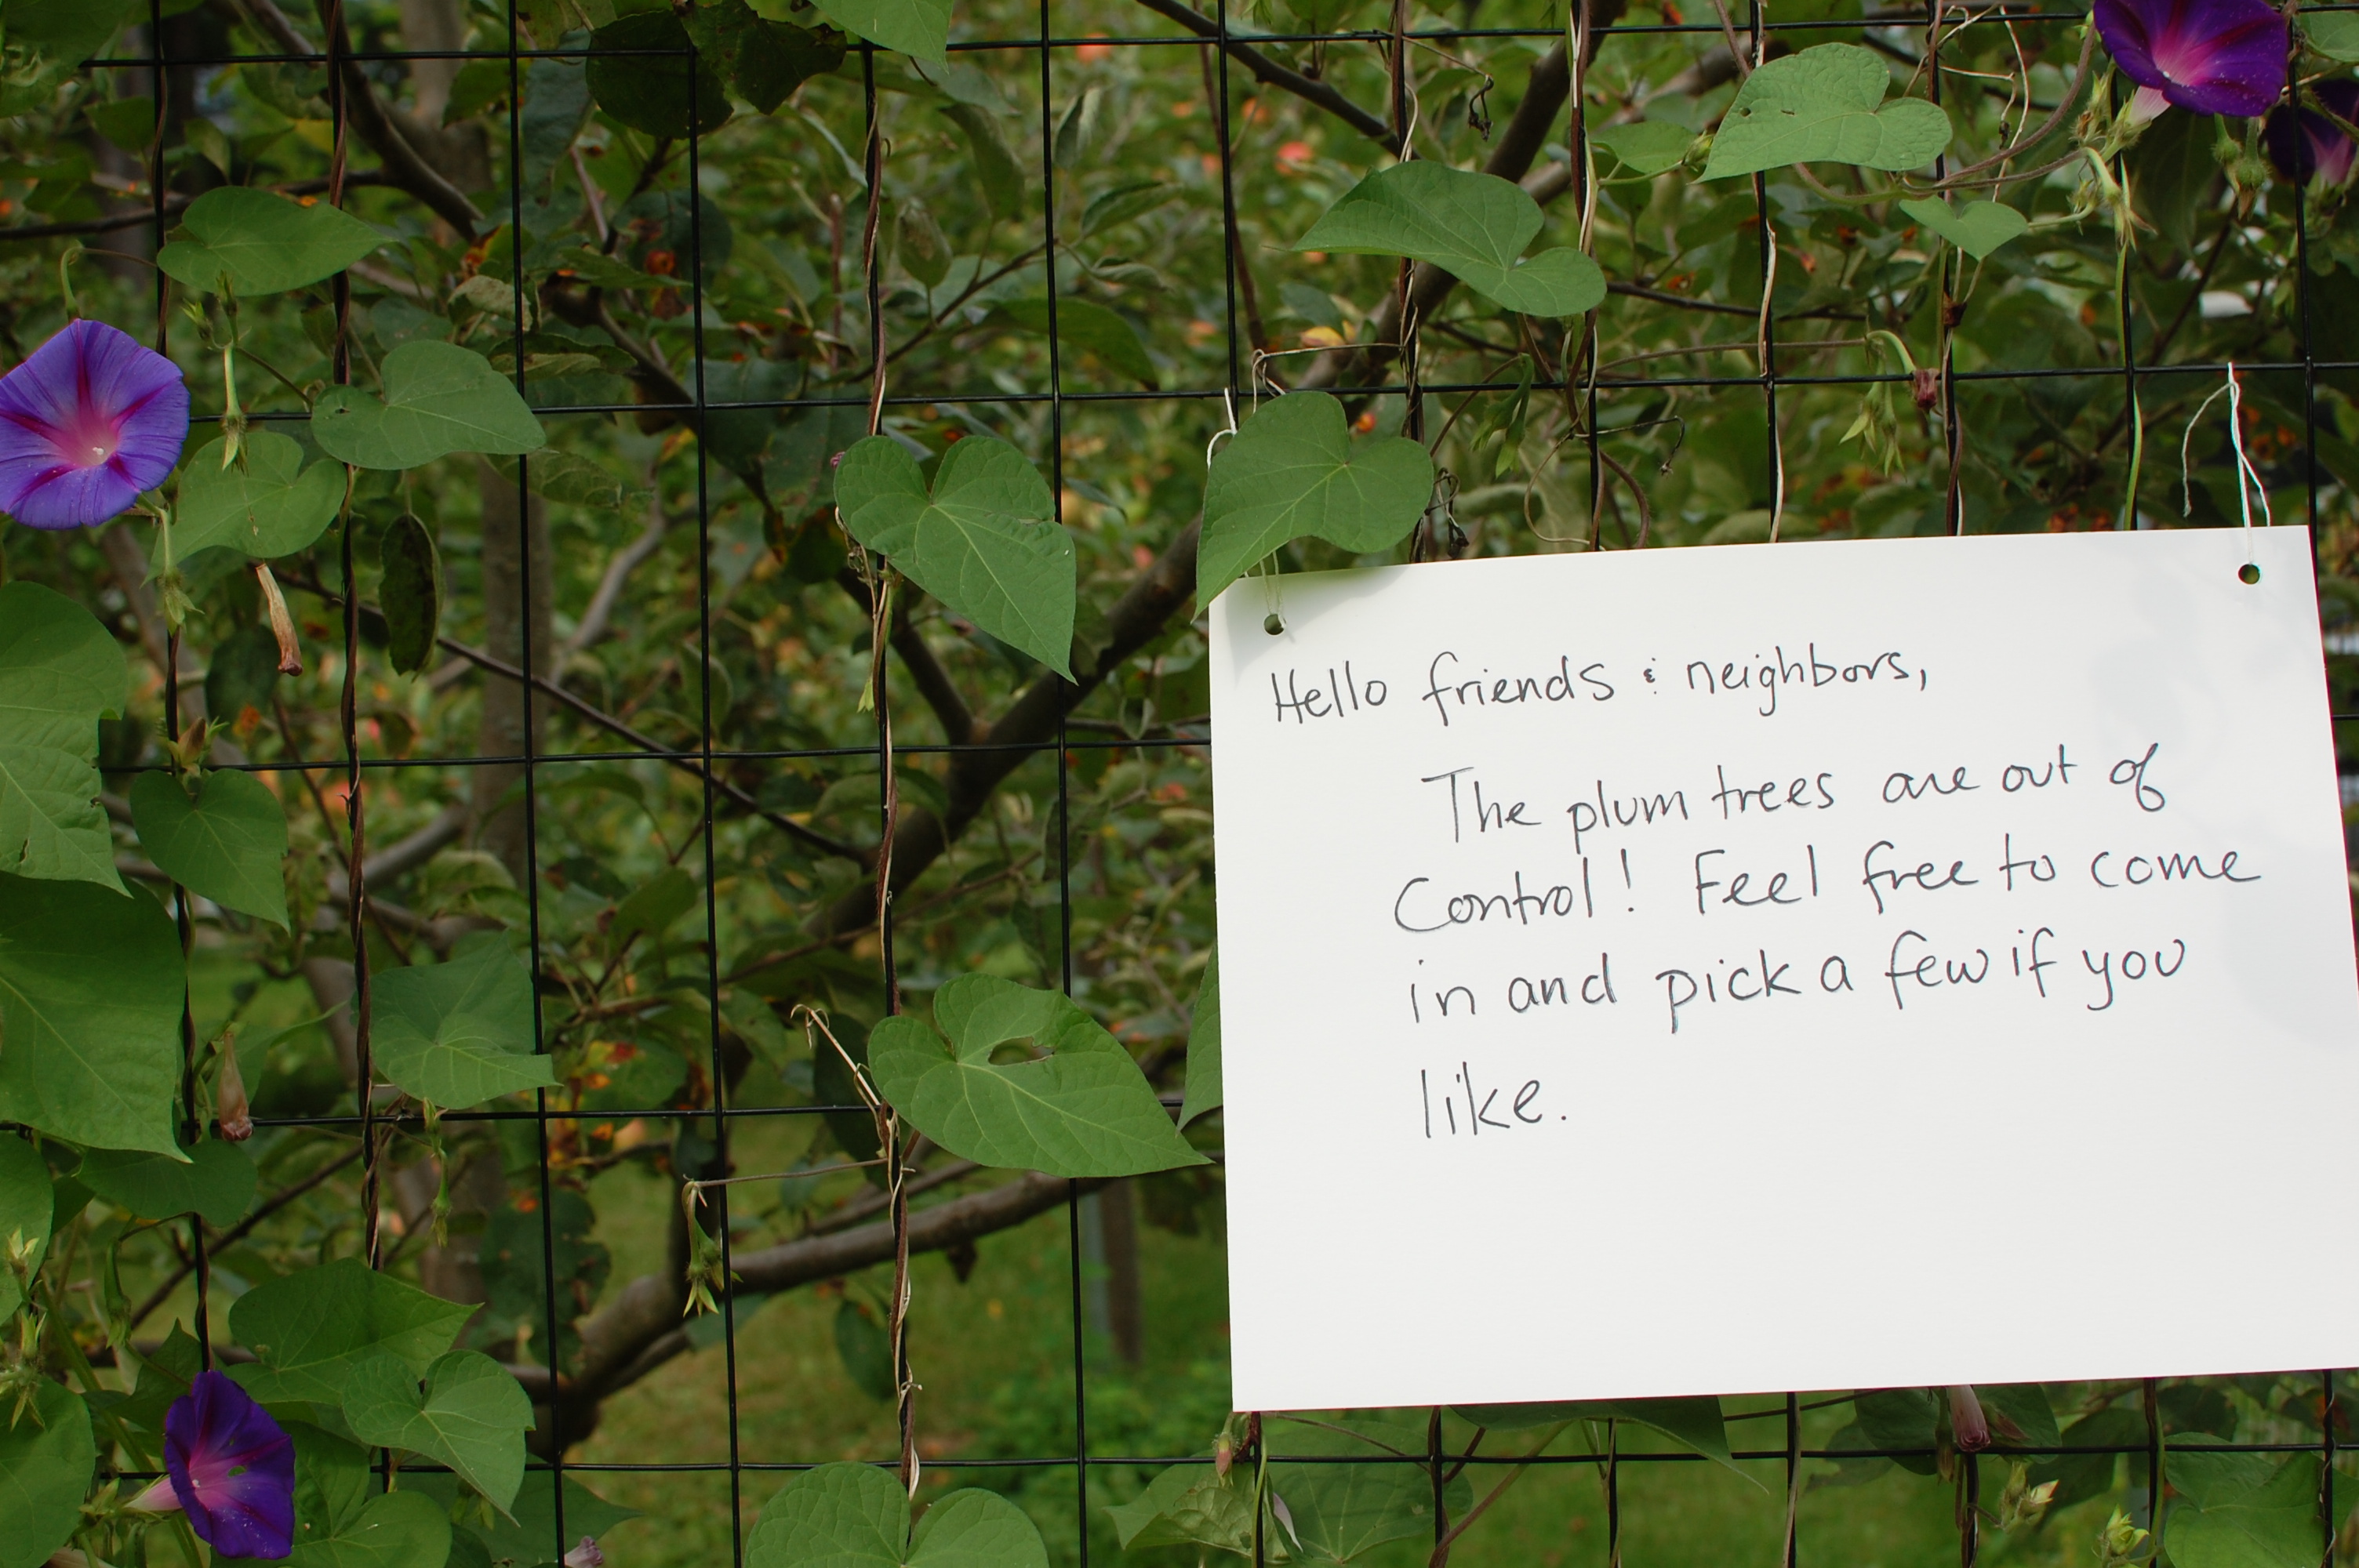 Hello friends & neighbors,
The plum trees are out of
Control! Feel free to come
in and pick a few if you
like.